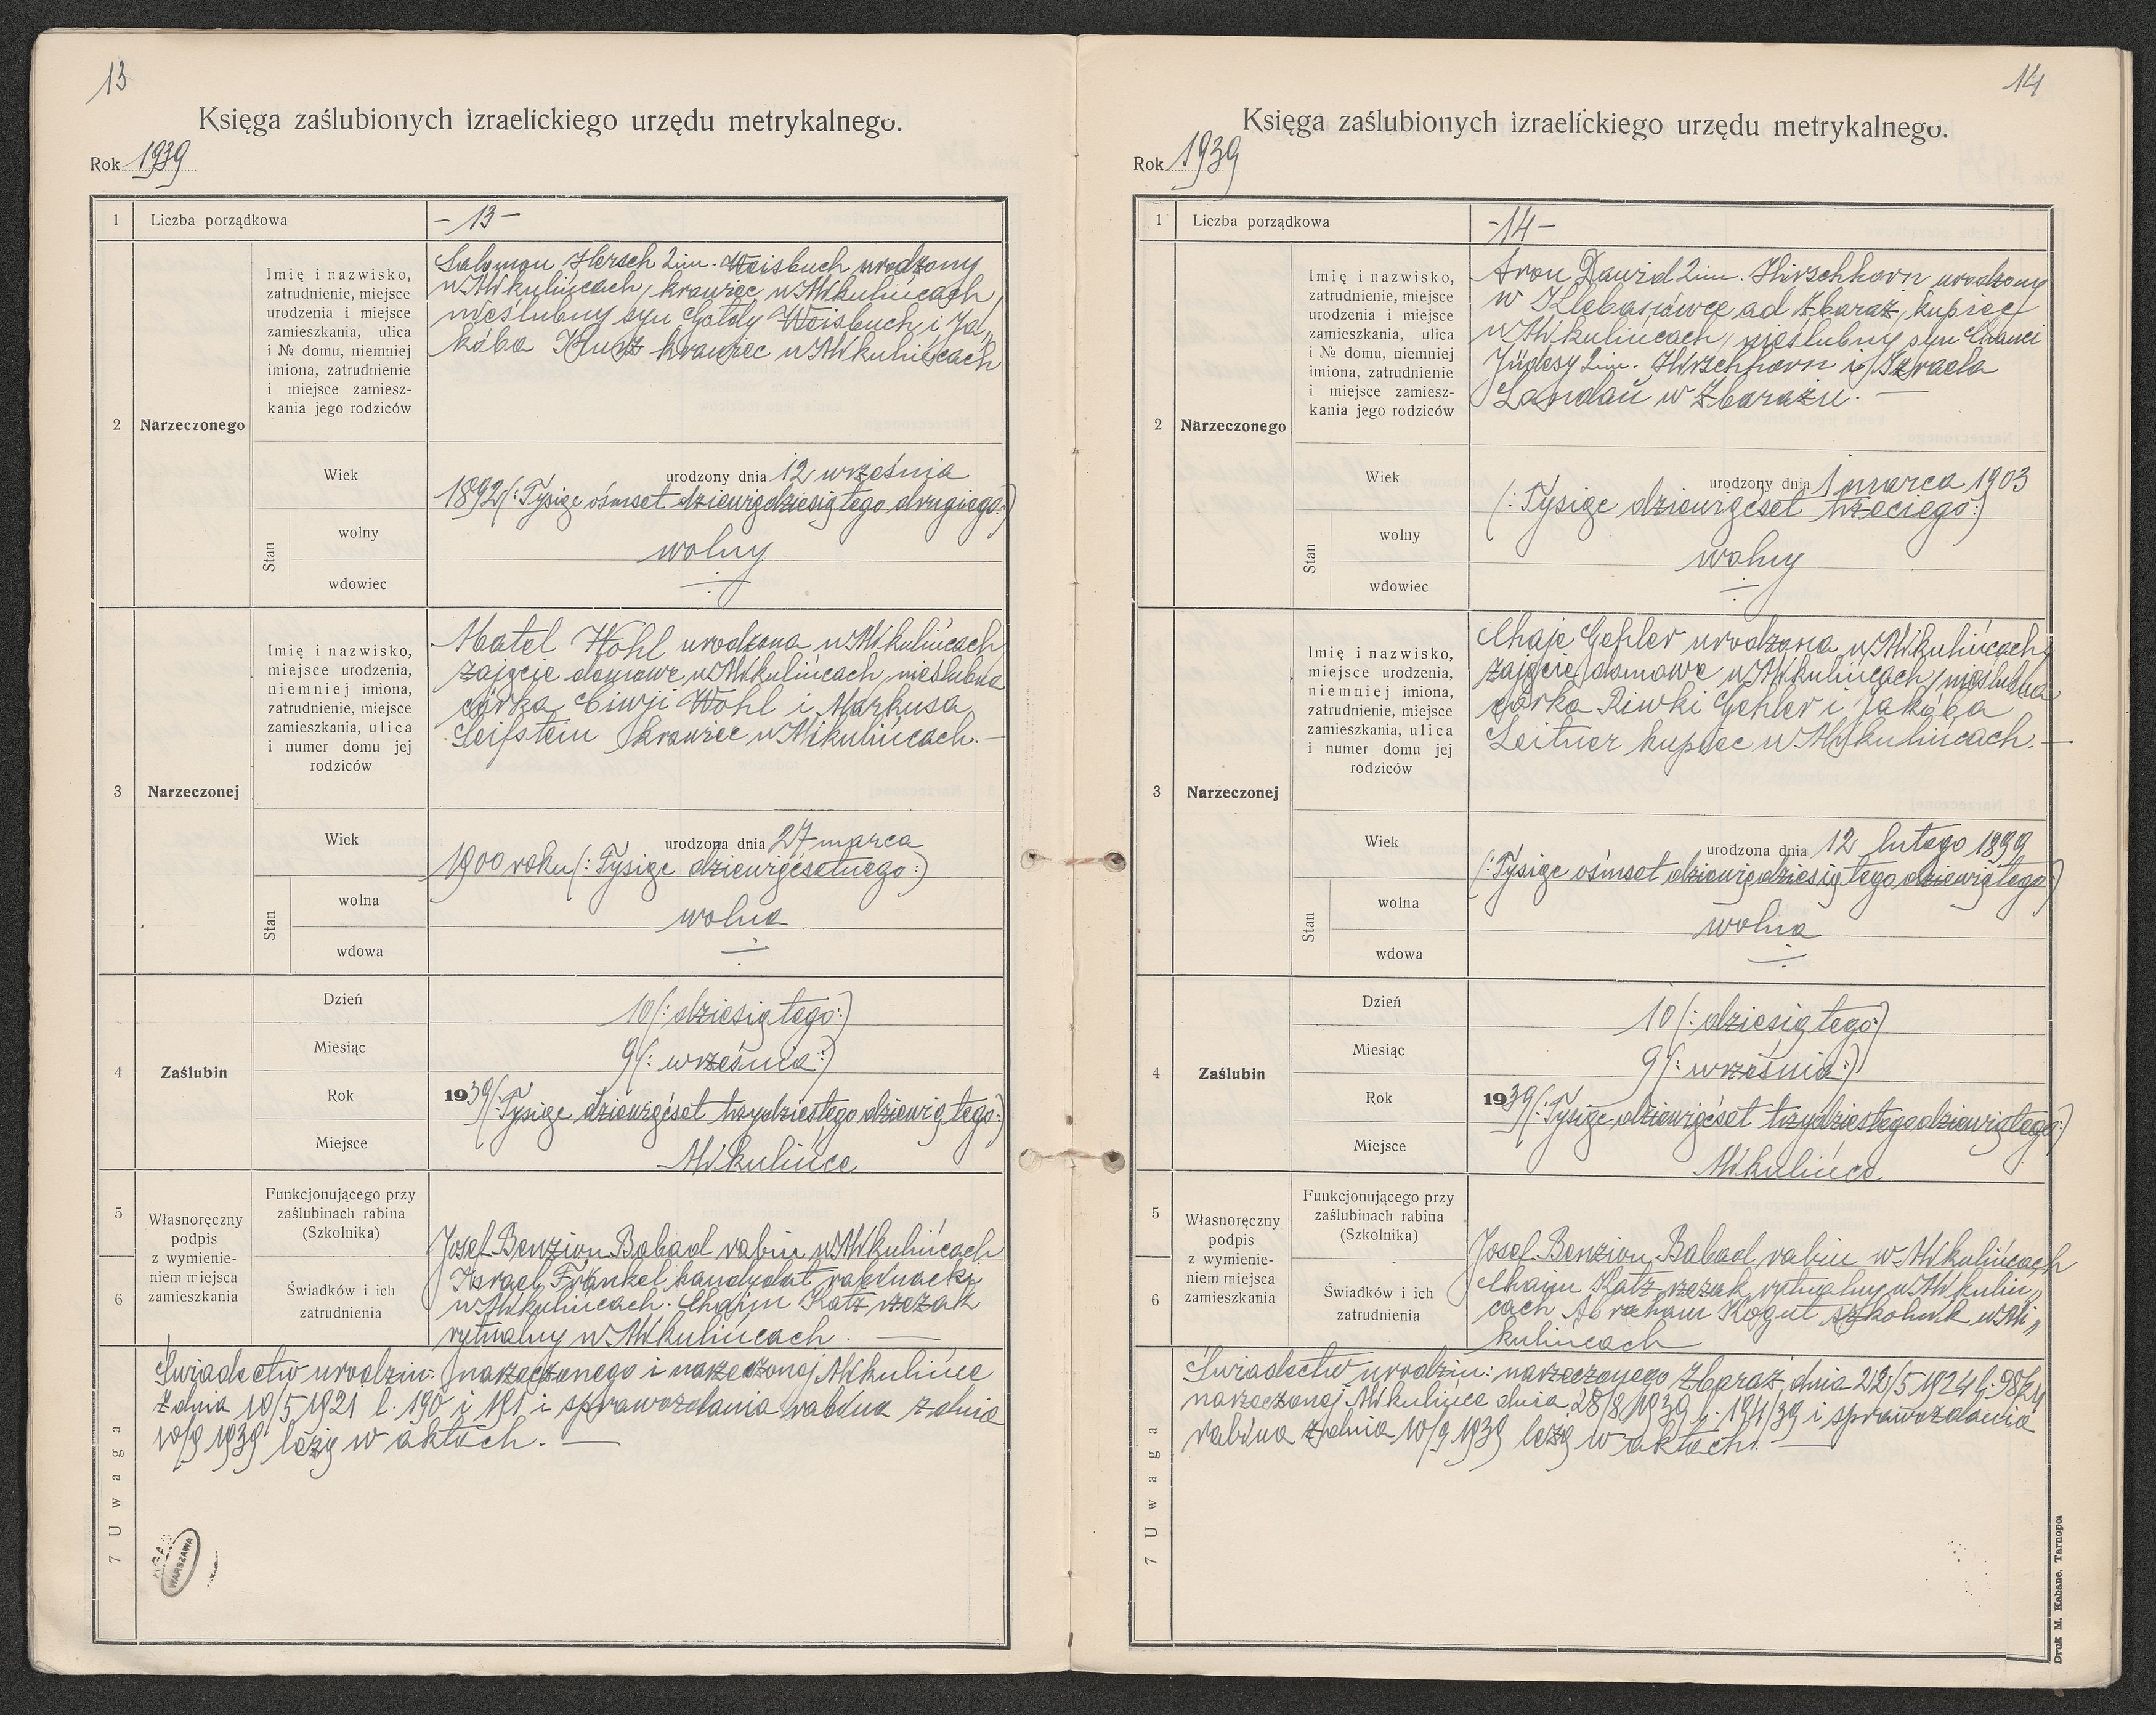 13
Księga zaślubionych izraelickiego urzędu metrykalnego.
Rok 1939
1 Liczba porządkowa -13-
2 Narzeczonego
Imię i nazwisko,
zatrudnienie, miejsce
urodzenia i miejsce
zamieszkania, ulica
i № domu, niemniej
imiona, zatrudnienie
i miejsce zamiesz-
kania jego rodziców
Salomon Hersch 2im. Weisbuch urodzony
w Mikulińcach, krawiec w Mikulińcach,
nieślubny syn Goldy Weisbuch i Ja„
kóba Kurz krawiec w Mikulińcach
Wiek
urodzony dnia 12 września
1892 (: Tysiąc ośmset dziewięćdziesiątego drugiego:)
Stan
wolny
wolny
wdowiec
3 Narzeczonej
Imię i nazwisko,
miejsce urodzenia,
niemniej imiona,
zatrudnienie, miejsce
zamieszkania, ulica
i numer domu jej
rodziców
Matel Wohl urodzona w Mikulińcach
zajęcie domowe w Mikulińcach, nieślubna
córka Ciwji Wohl i Markusa
Seifstein krawiec w Mikulińcach.—
Wiek
urodzona dnia 27 marca
1900 roku (: Tysiąc dziewięćsetnego :)
Stan
wolna
wolna
wdowa
4 Zaślubin
Dzień 10 (: dziesiątego:)
Miesiąc 9 (: września :)
Rok 1939 (: Tysiąc dziewięćset trzydziestego dziewiątego:)
Miejsce Mikulińce
5
6
Własnoręczny
podpis
z wymienie-
niem miejsca
zamieszkania
Funkcjonującego przy
zaślubinach rabina
(Szkolnika)
Świadków i ich
zatrudnienia
Josef Benzion Babad rabin w Mikulińcach
Israel Fränkel kandydat rabinacki
w Mikulińcach. Chaim Katz rzezak
rytualny w Mikulińcach. —
7 Uwaga
Świadectwo urodzin: narzeczonego i narzeczonej Mikulińce
z dnia 10/5 1921 l. 190 i 191 i sprawozdania rabina z dnia
10/9 1939 leżą w aktach. —
WARSZAWA
14
Księga zaślubionych izraelickiego urzędu metrykalnego.
Rok 1939
1 Liczba porządkowa -14-
2 Narzeczonego
Imię i nazwisko,
zatrudnienie, miejsce
urodzenia i miejsce
zamieszkania, ulica
i № domu, niemniej
imiona, zatrudnienie
i miejsce zamiesz-
kania jego rodziców
Aron Dawid 2im. Hirschhorn urodzony
w Klebanówce ad Zbaraż, kupiec
w Mikulińcach, nieślubny syn Chanci
Jüdesy 2im. Hirschhorn i Izraela
Landau w Zbarażu. —
Wiek
urodzony dnia 1 marca 1903
(: Tysiąc dziewięćset trzeciego:)
Stan
wolny
wolny
wdowiec
3 Narzeczonej
Imię i nazwisko,
miejsce urodzenia,
niemniej imiona,
zatrudnienie, miejsce
zamieszkania, ulica
i numer domu jej
rodziców
Chaje Gehler urodzona w Mikulińcach,
zajęcie domowe w Mikulińcach, nieślubna
córka Riwki Gehler i Jakóba
Leitner kupiec w Mikulińcach.—
Wiek
urodzona dnia 12 lutego 1899
(: Tysiąc ośmset dziewięćdziesiątego dziewiątego:)
Stan
wolna
wolna
wdowa
4 Zaślubin
Dzień 10 (: dziesiątego:)
Miesiąc 9 (: września:)
Rok 1939 (: Tysiąc dziewięćset trzydziestego dziewiątego:)
Miejsce Mikulińce
5
6
Własnoręczny
podpis
z wymienie-
niem miejsca
zamieszkania
Funkcjonującego przy
zaślubinach rabina
(Szkolnika)
Świadków i ich
zatrudnienia
Josef Benzion Babad rabin w Mikulińcach
Chaim Katz rzezak rytualny w Mikuliń„
cach Abraham Kogut szkolnik w Mi„
kulińcach
7 Uwaga
Świadectwo urodzin: narzeczonego Zbaraż dnia 22/5 1924 l. 98/24
narzeczonej Mikulińce dnia 28/8 1939 l. 194/39 i sprawozdania
rabina z dnia 10/9 1939 leżą w aktach. —
Druk M. Kahane, Tarnopol